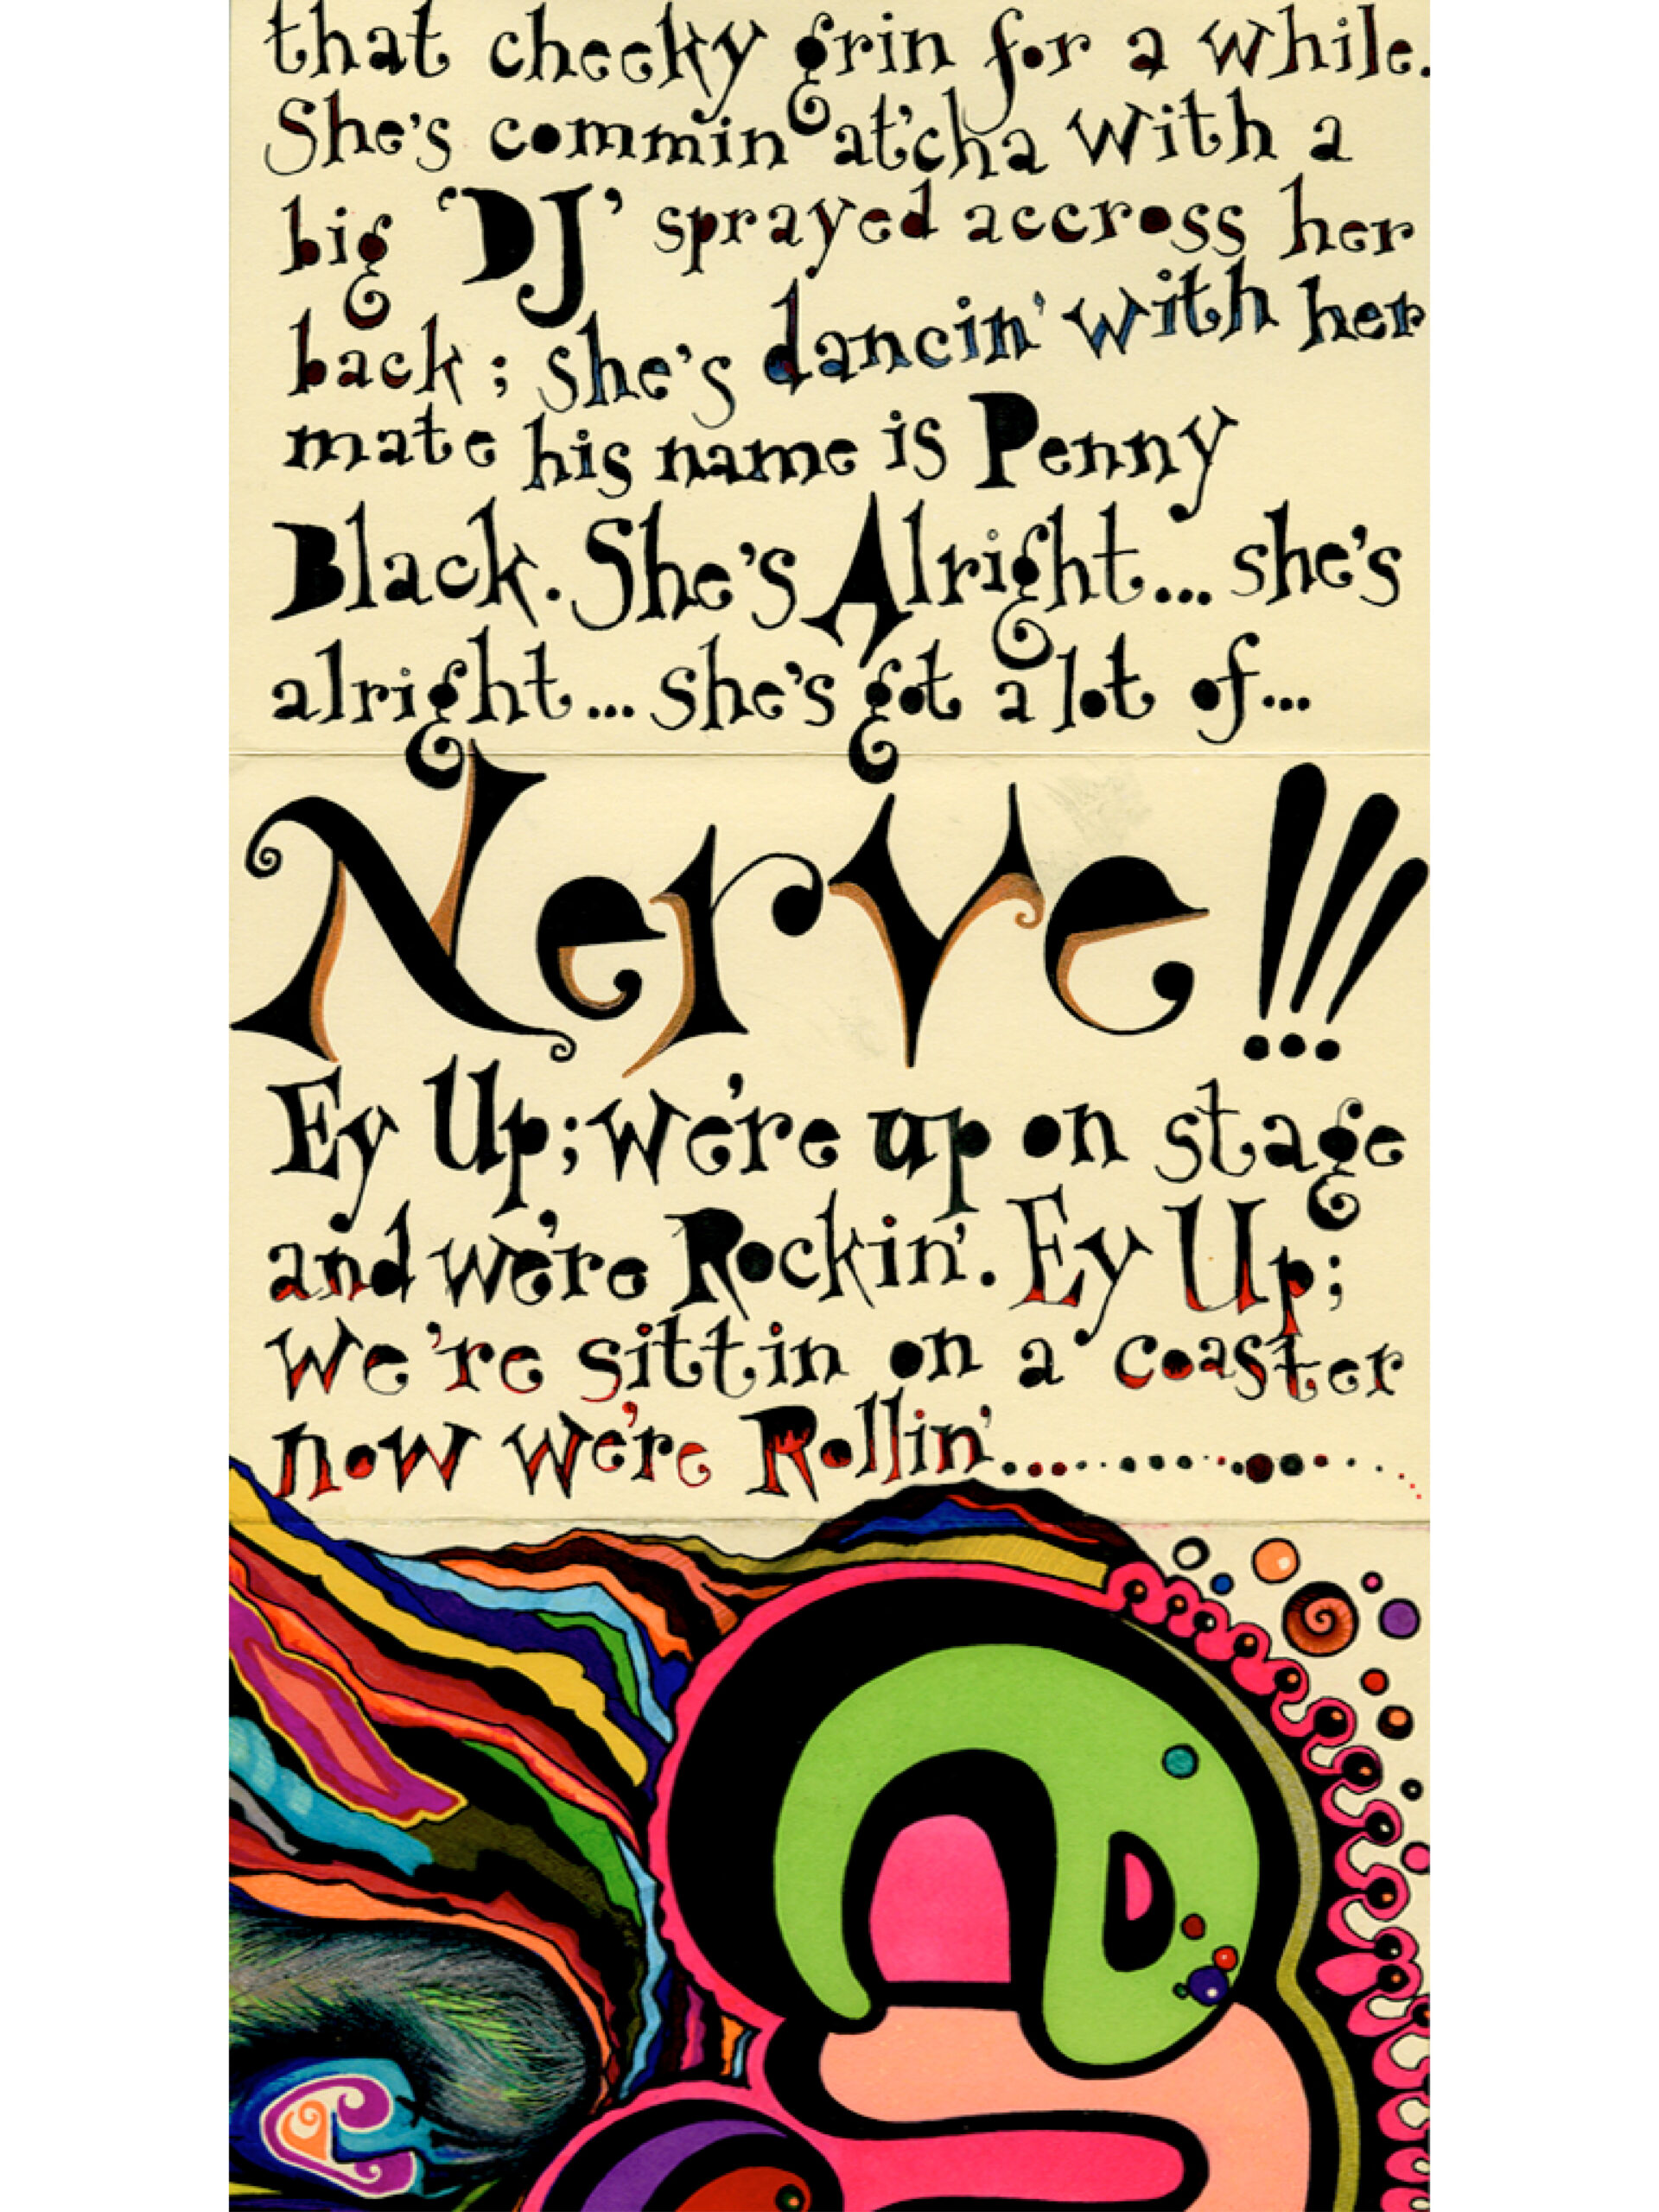 that cheeky grin for a while.
She's commin at'cha with a
big 'DJ' sprayed accross her
back; she's dancin' with her
mate his name is Penny
Black. She's Alright... she's
alright... she's got a lot of...
Nerve!!!
Ey Up; we're up on stage
and we're Rockin'. Ey Up;
we're sittin on a coaster
now we're Rollin'..............................